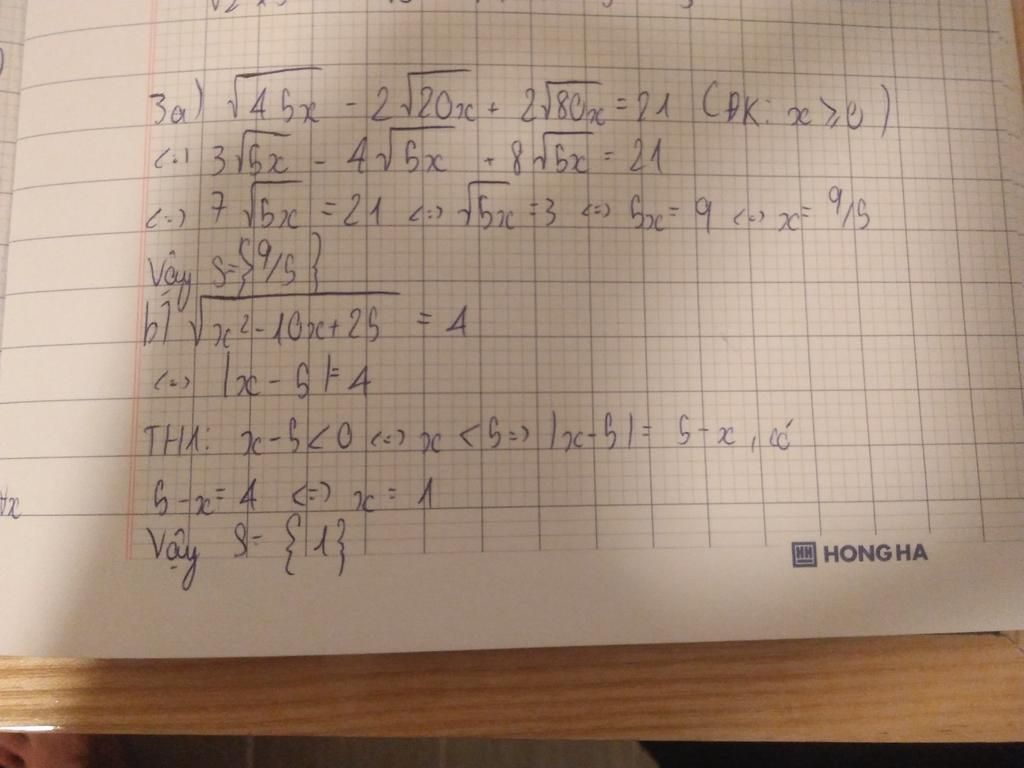 3a) √45x - 2√20x + 2√80x = 21 (ĐK: x ≥ 0)
<=> 3√5x - 4√5x + 8√5x = 21
<=> 7√5x = 21 <=> √5x = 3 <=> 5x = 9 <=> x = 9/5
Vậy S = {9/5}
b) √x² - 10x + 25 = 4
<=> |x - 5| = 4
TH1: x - 5 < 0 <=> x < 5 => |x - 5| = 5 - x, có
5 - x = 4 <=> x = 1
Vậy S = {1}
HH HONG HA